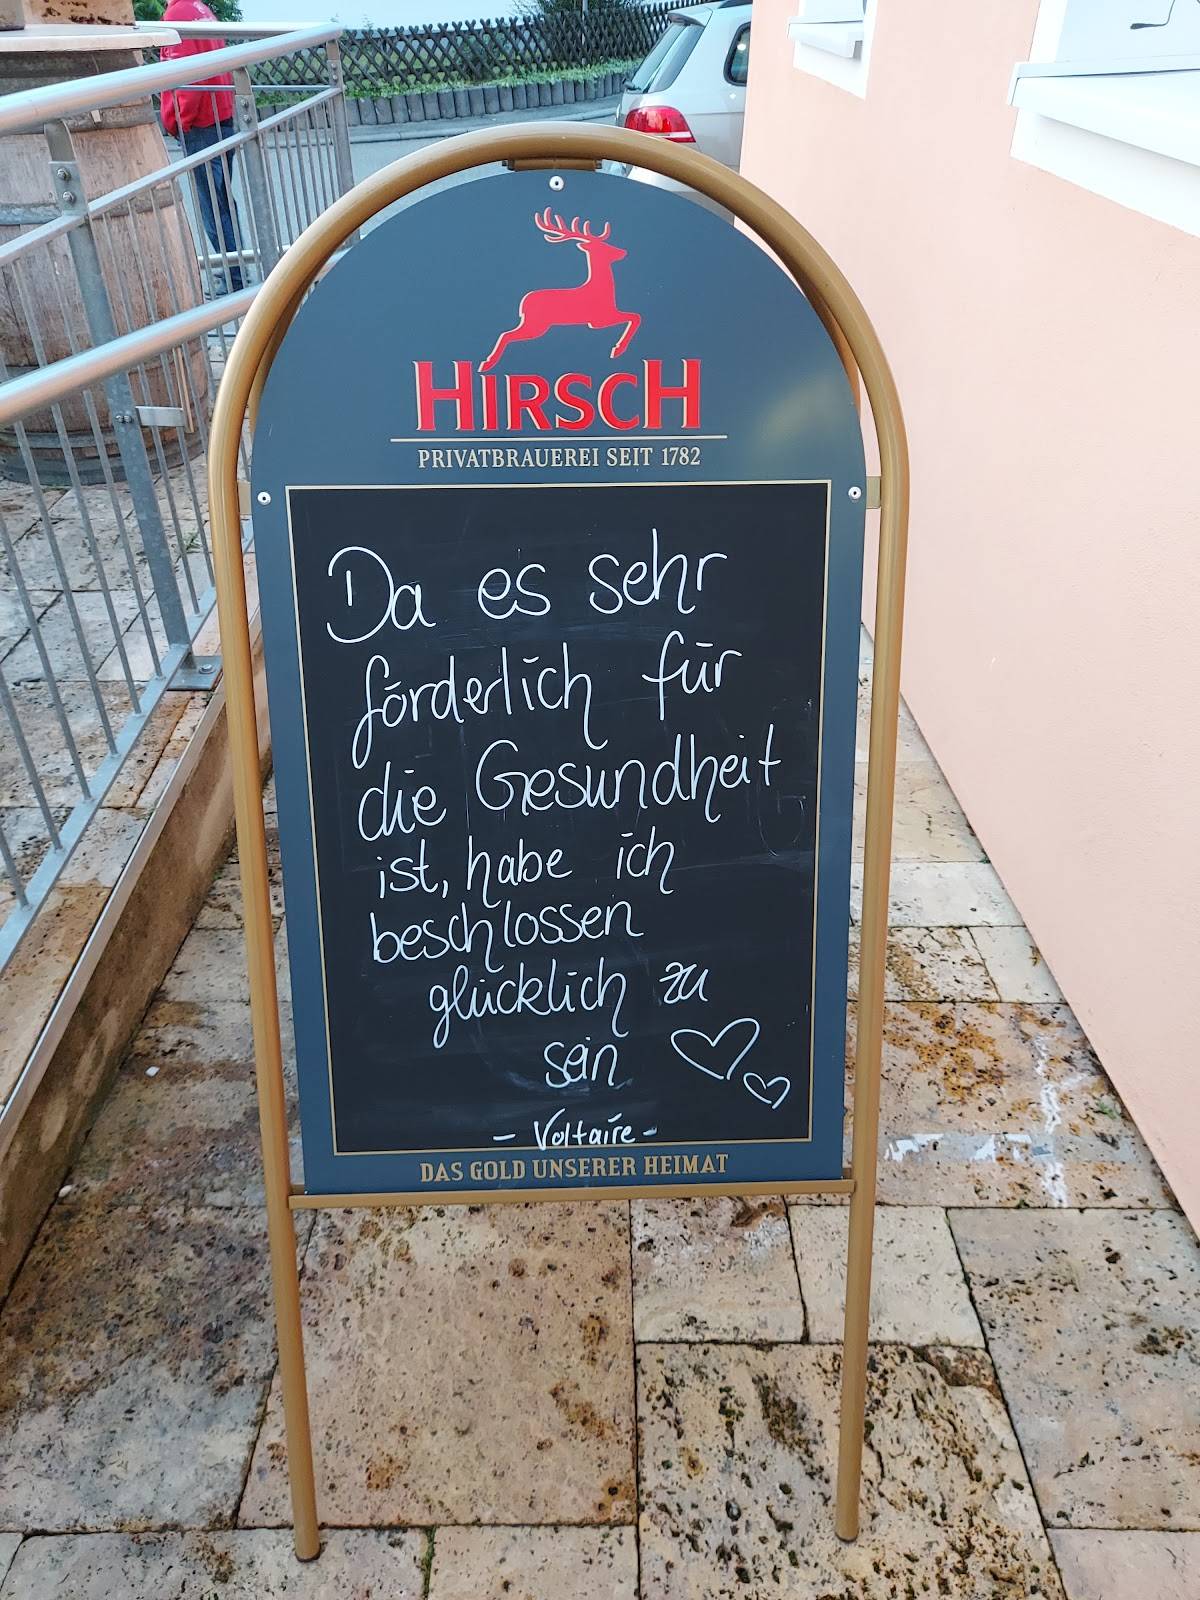 HIRSCH
PRIVATBRAUEREI SEIT 1782
Da es sehr
förderlich für
die Gesundheit
ist, habe ich
beschlossen
glücklich zu
sein
- Voltaire -
DAS GOLD UNSERER HEIMAT